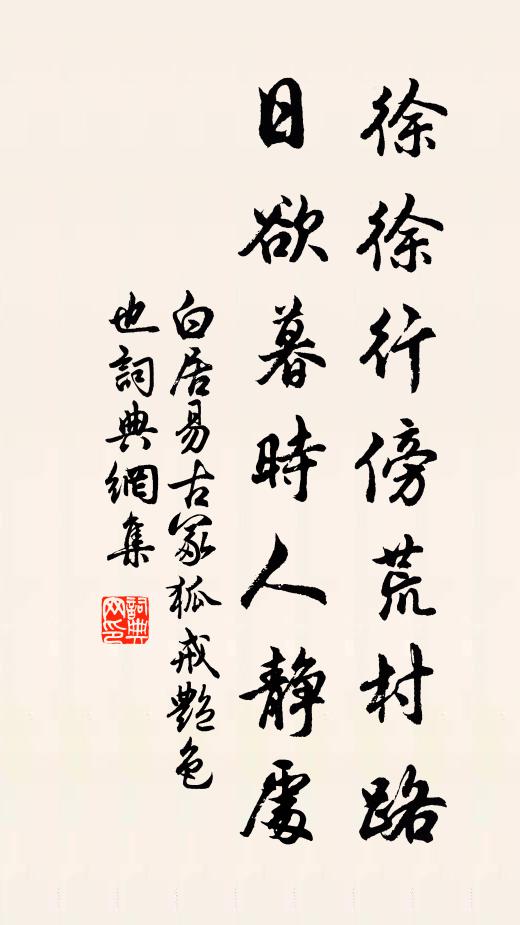 徐徐行傍荒村路
日欲暮時人靜處
白居易古冢狐戒艷色
也詞典網集
詞典
网印